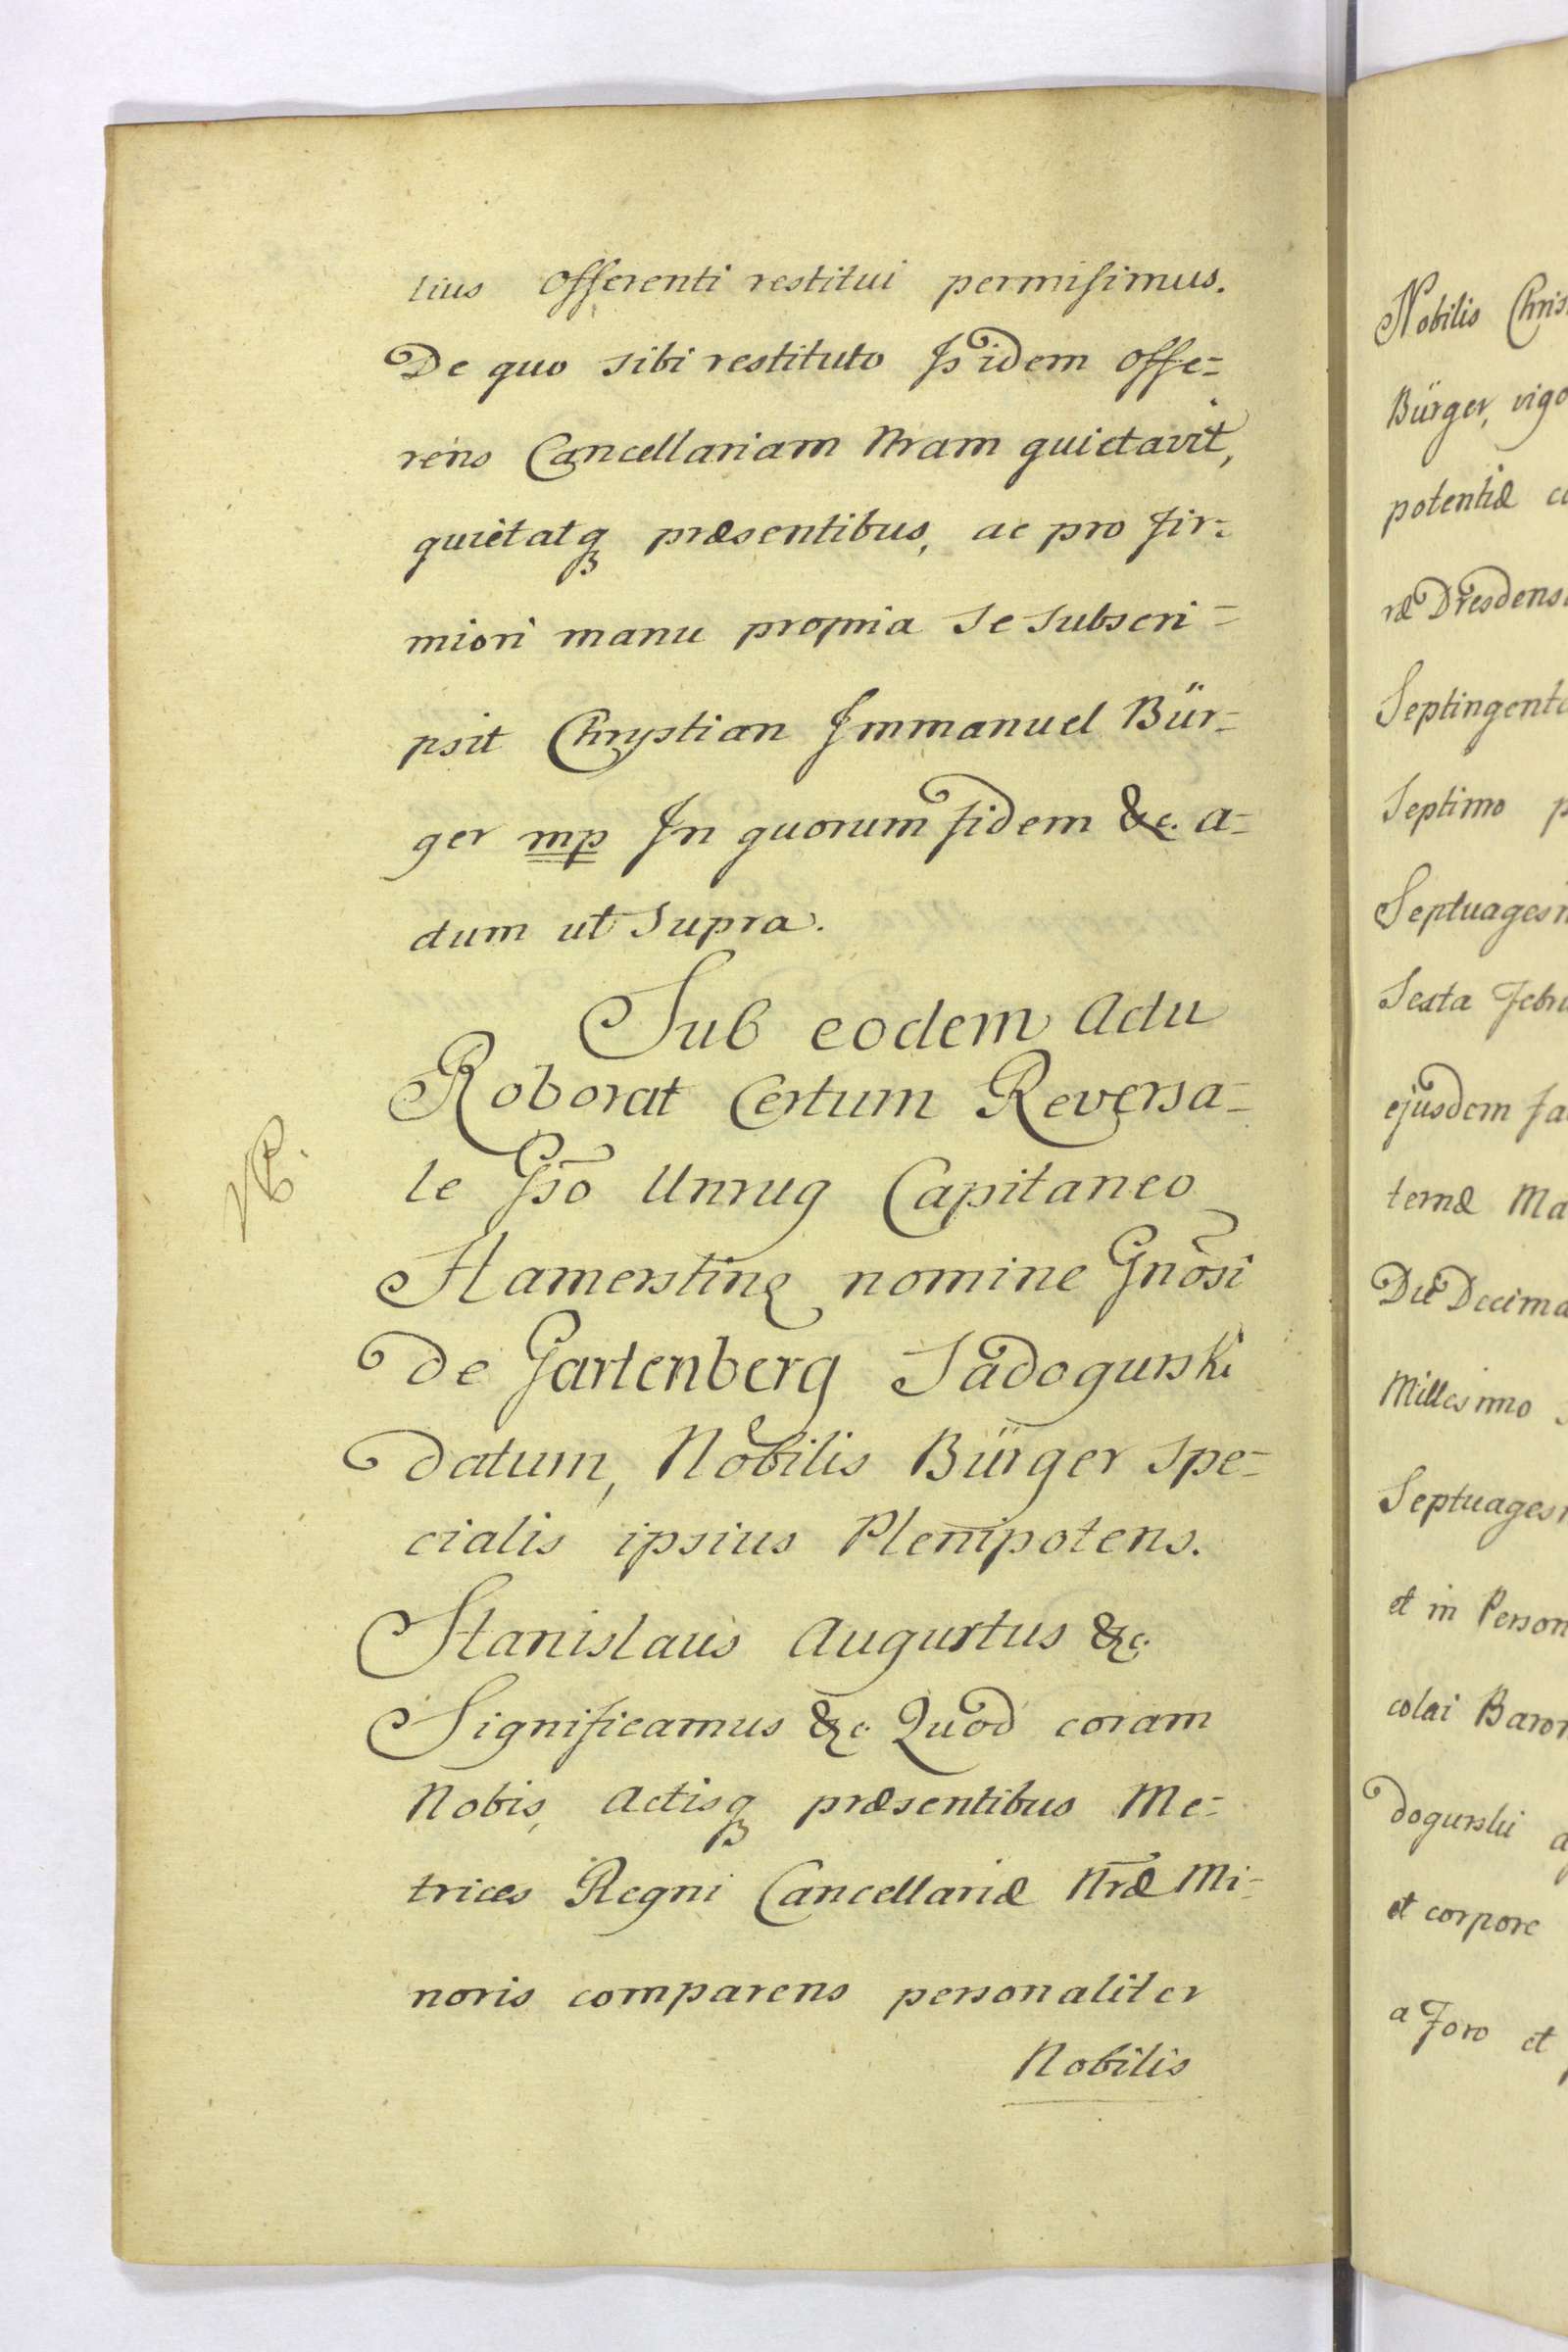 tius Offerenti restitui permisimus.
De quo sibi restituto Isidem Offe=
rens Cancellariam Nram quietavit,
quietatq præsentibus, ac pro fir=
miori manu propria se subscri=
psit Chrystian Immanuel Bür=
ger mp In quorum fidem &c. a=
ctum ut supra.
Sub eodem Actu
Roborat Certum Reversa=
le Gso Unrug Capitaneo
Hamerstinę nomine Gnosi
de Gartenberg Sadogurski
datum, Nobilis Bürger spe=
cialis ipsius Plenipotens.
Stanislaus Augustus &c.
Significamus &c. Quod coram
Nobis, Actisq præsentibus Me=
trices Regni Cancellariæ Nræ Mi=
noris comparens personaliter
Nobilis
Nobilis Chris
Bürger, vigo
potentiæ co
ræ Dresdens
Septingente
Septimo p
Septuagesi
Sexta Febru
ejusdem fa
ternæ Ma
Die Decima
Millesimo s
Septuagesi
et in Person
colai Baron
dogurski a
et corpore
a Foro et